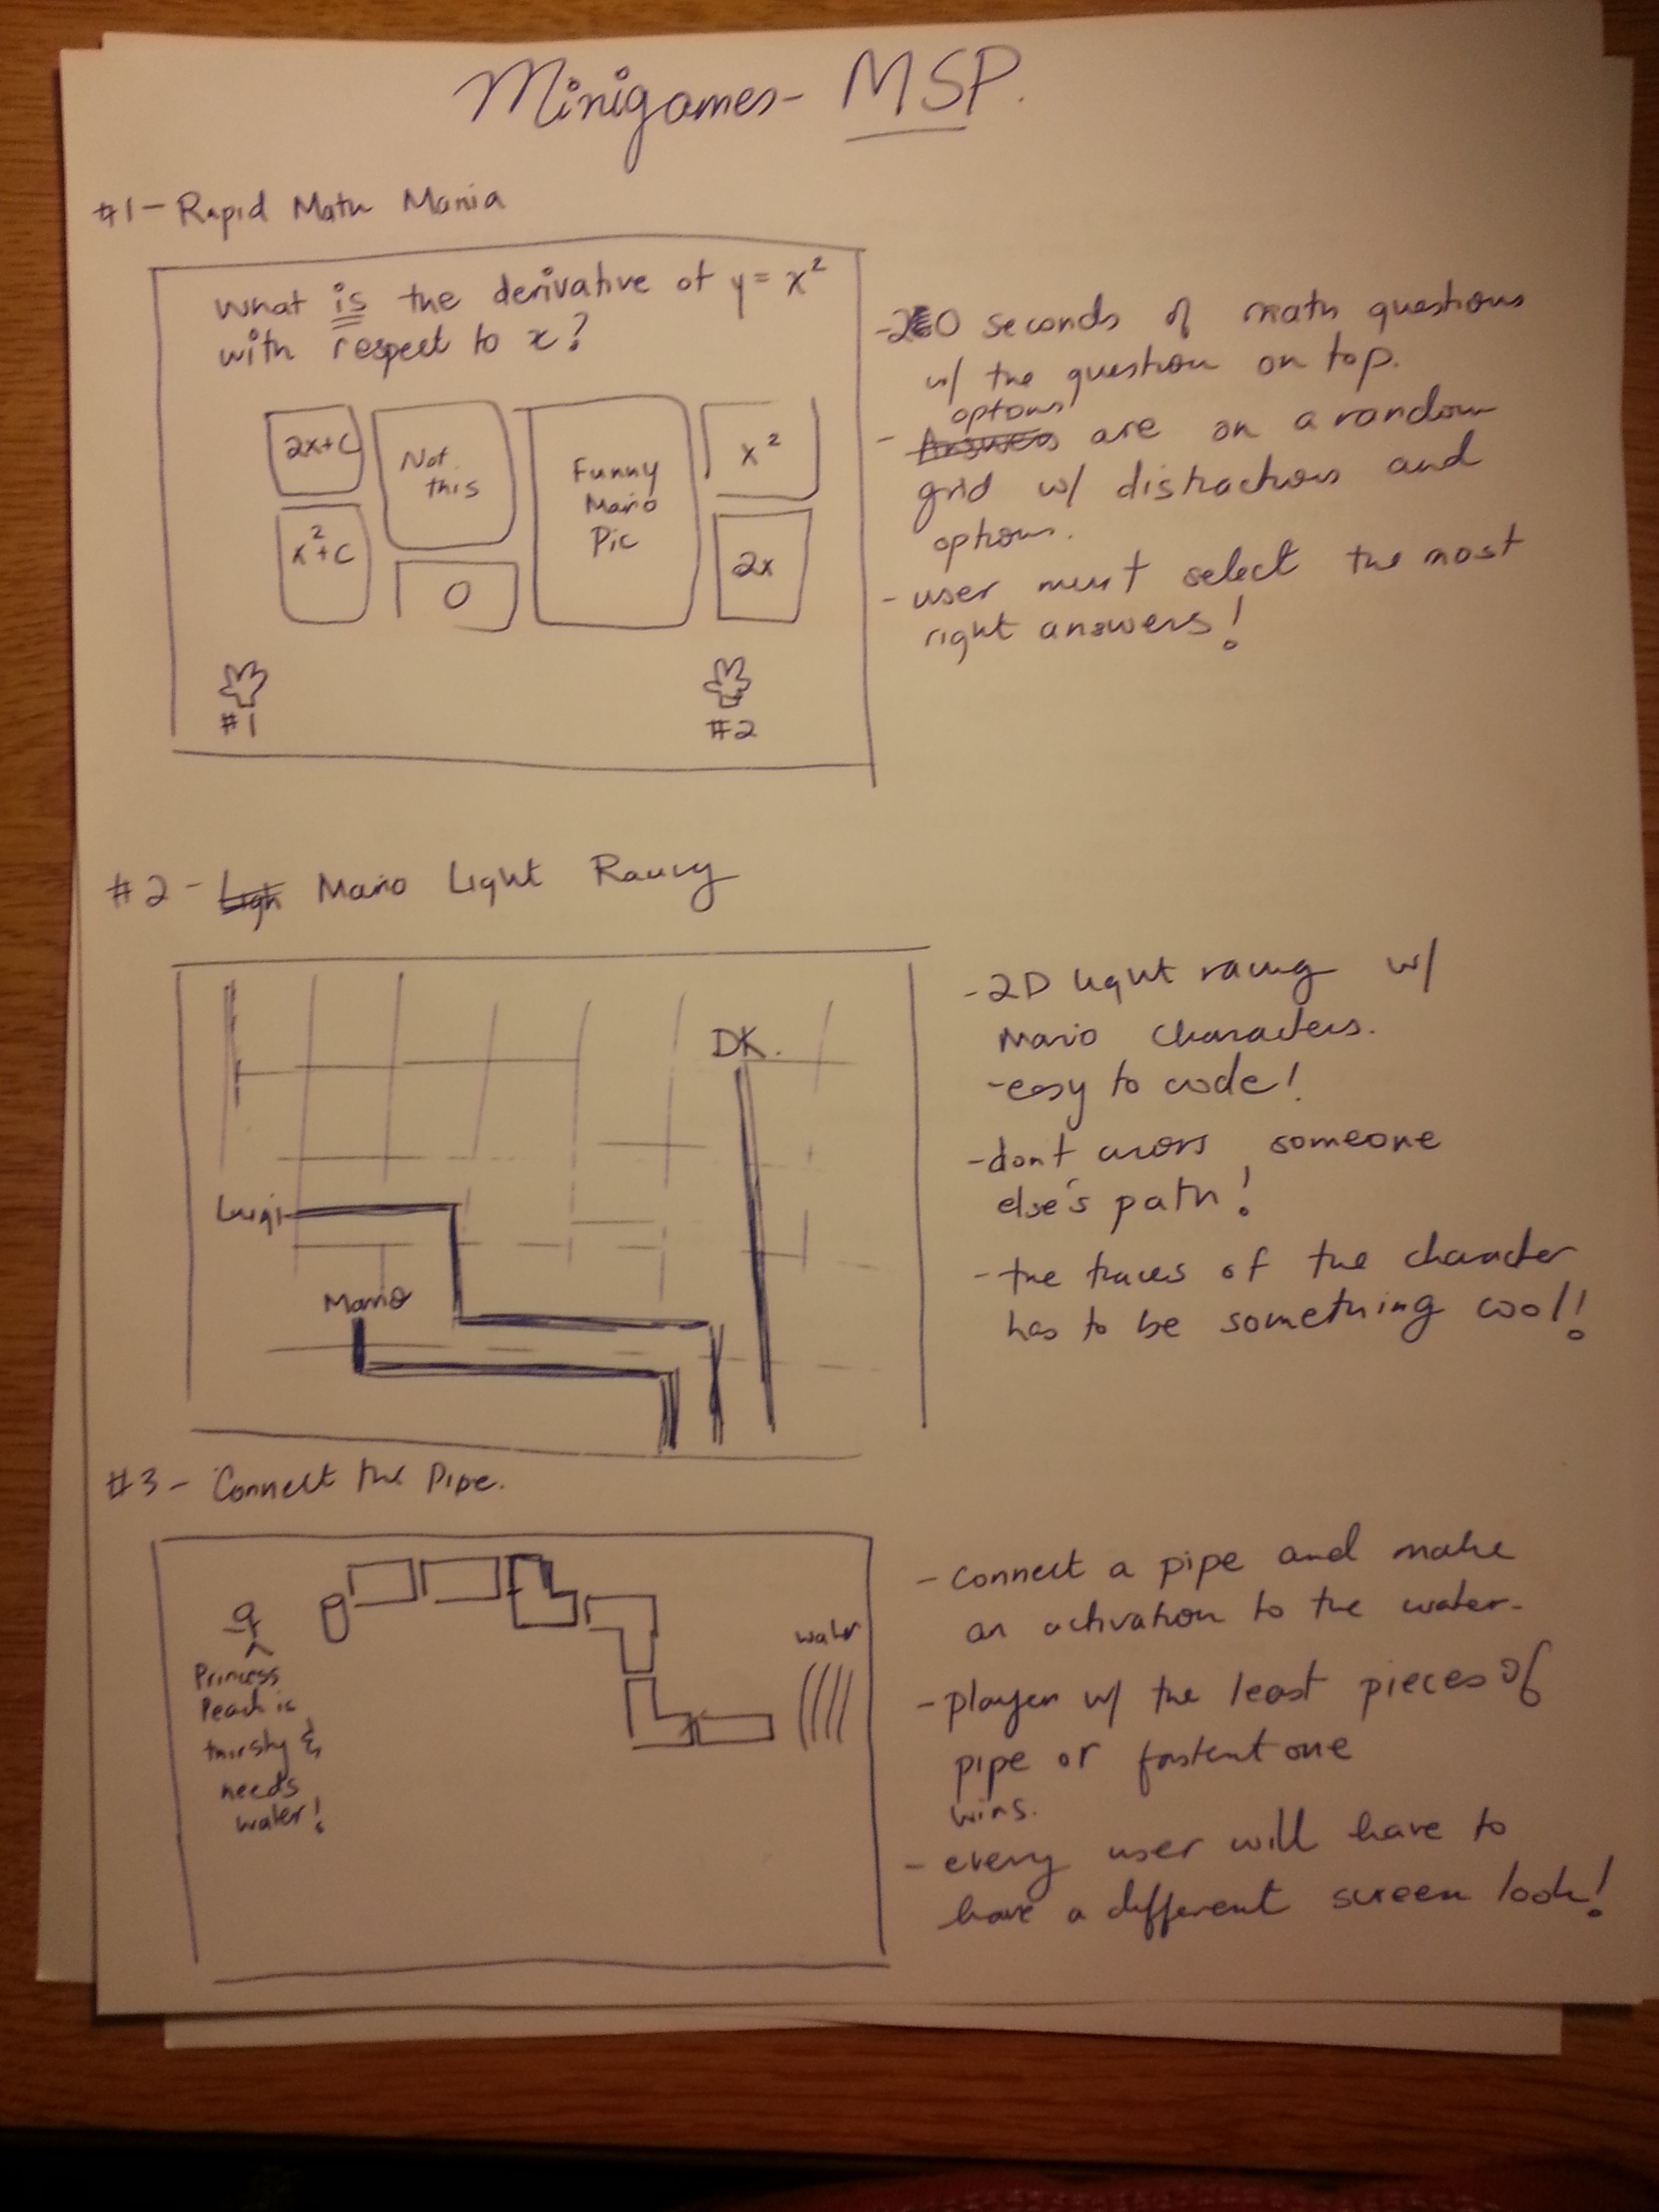 Minigames - MSP.
#1 - Rapid Math Mania
What is the derivative of y = x²
with respect to x?
2x+C
Not this
Funny Mario Pic
x²
x²+C
O
2x
#1
#2
seconds of math questions
w/ the question on top.
options
- Answers are on a random
grid w/ distractions and
options.
- user must select the most
right answers!
#2 - Ligh Mario Light Racing
DK.
Luigi
Mario
- 2D light racing w/
Mario Characters.
- easy to code!
- don't cross someone
else's path!
- the traces of the character
has to be something cool!
#3 - Connect the Pipe.
Princess
Peach is
thirsty &
needs
water!
water
- connect a pipe and make
an activation to the water.
- player w/ the least pieces of
pipe or fastest one
wins.
- every user will have to
have a different screen look!